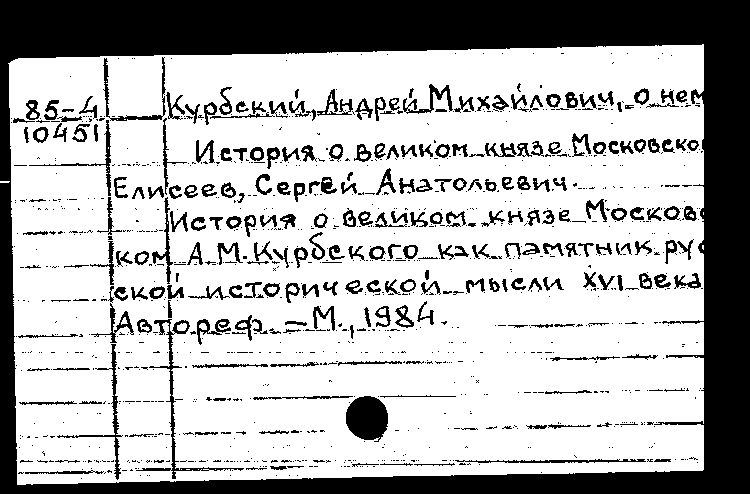 85-4 Курбский, Андрей Михайлович, о нем
10451
История о великом князе Московско
Елисеев, Сергей Анатольевич.
История о великом князе Московс
ком А.М. Курбского как памятник рус
ской исторической мысли XVI века
Автореф. – М., 1984.